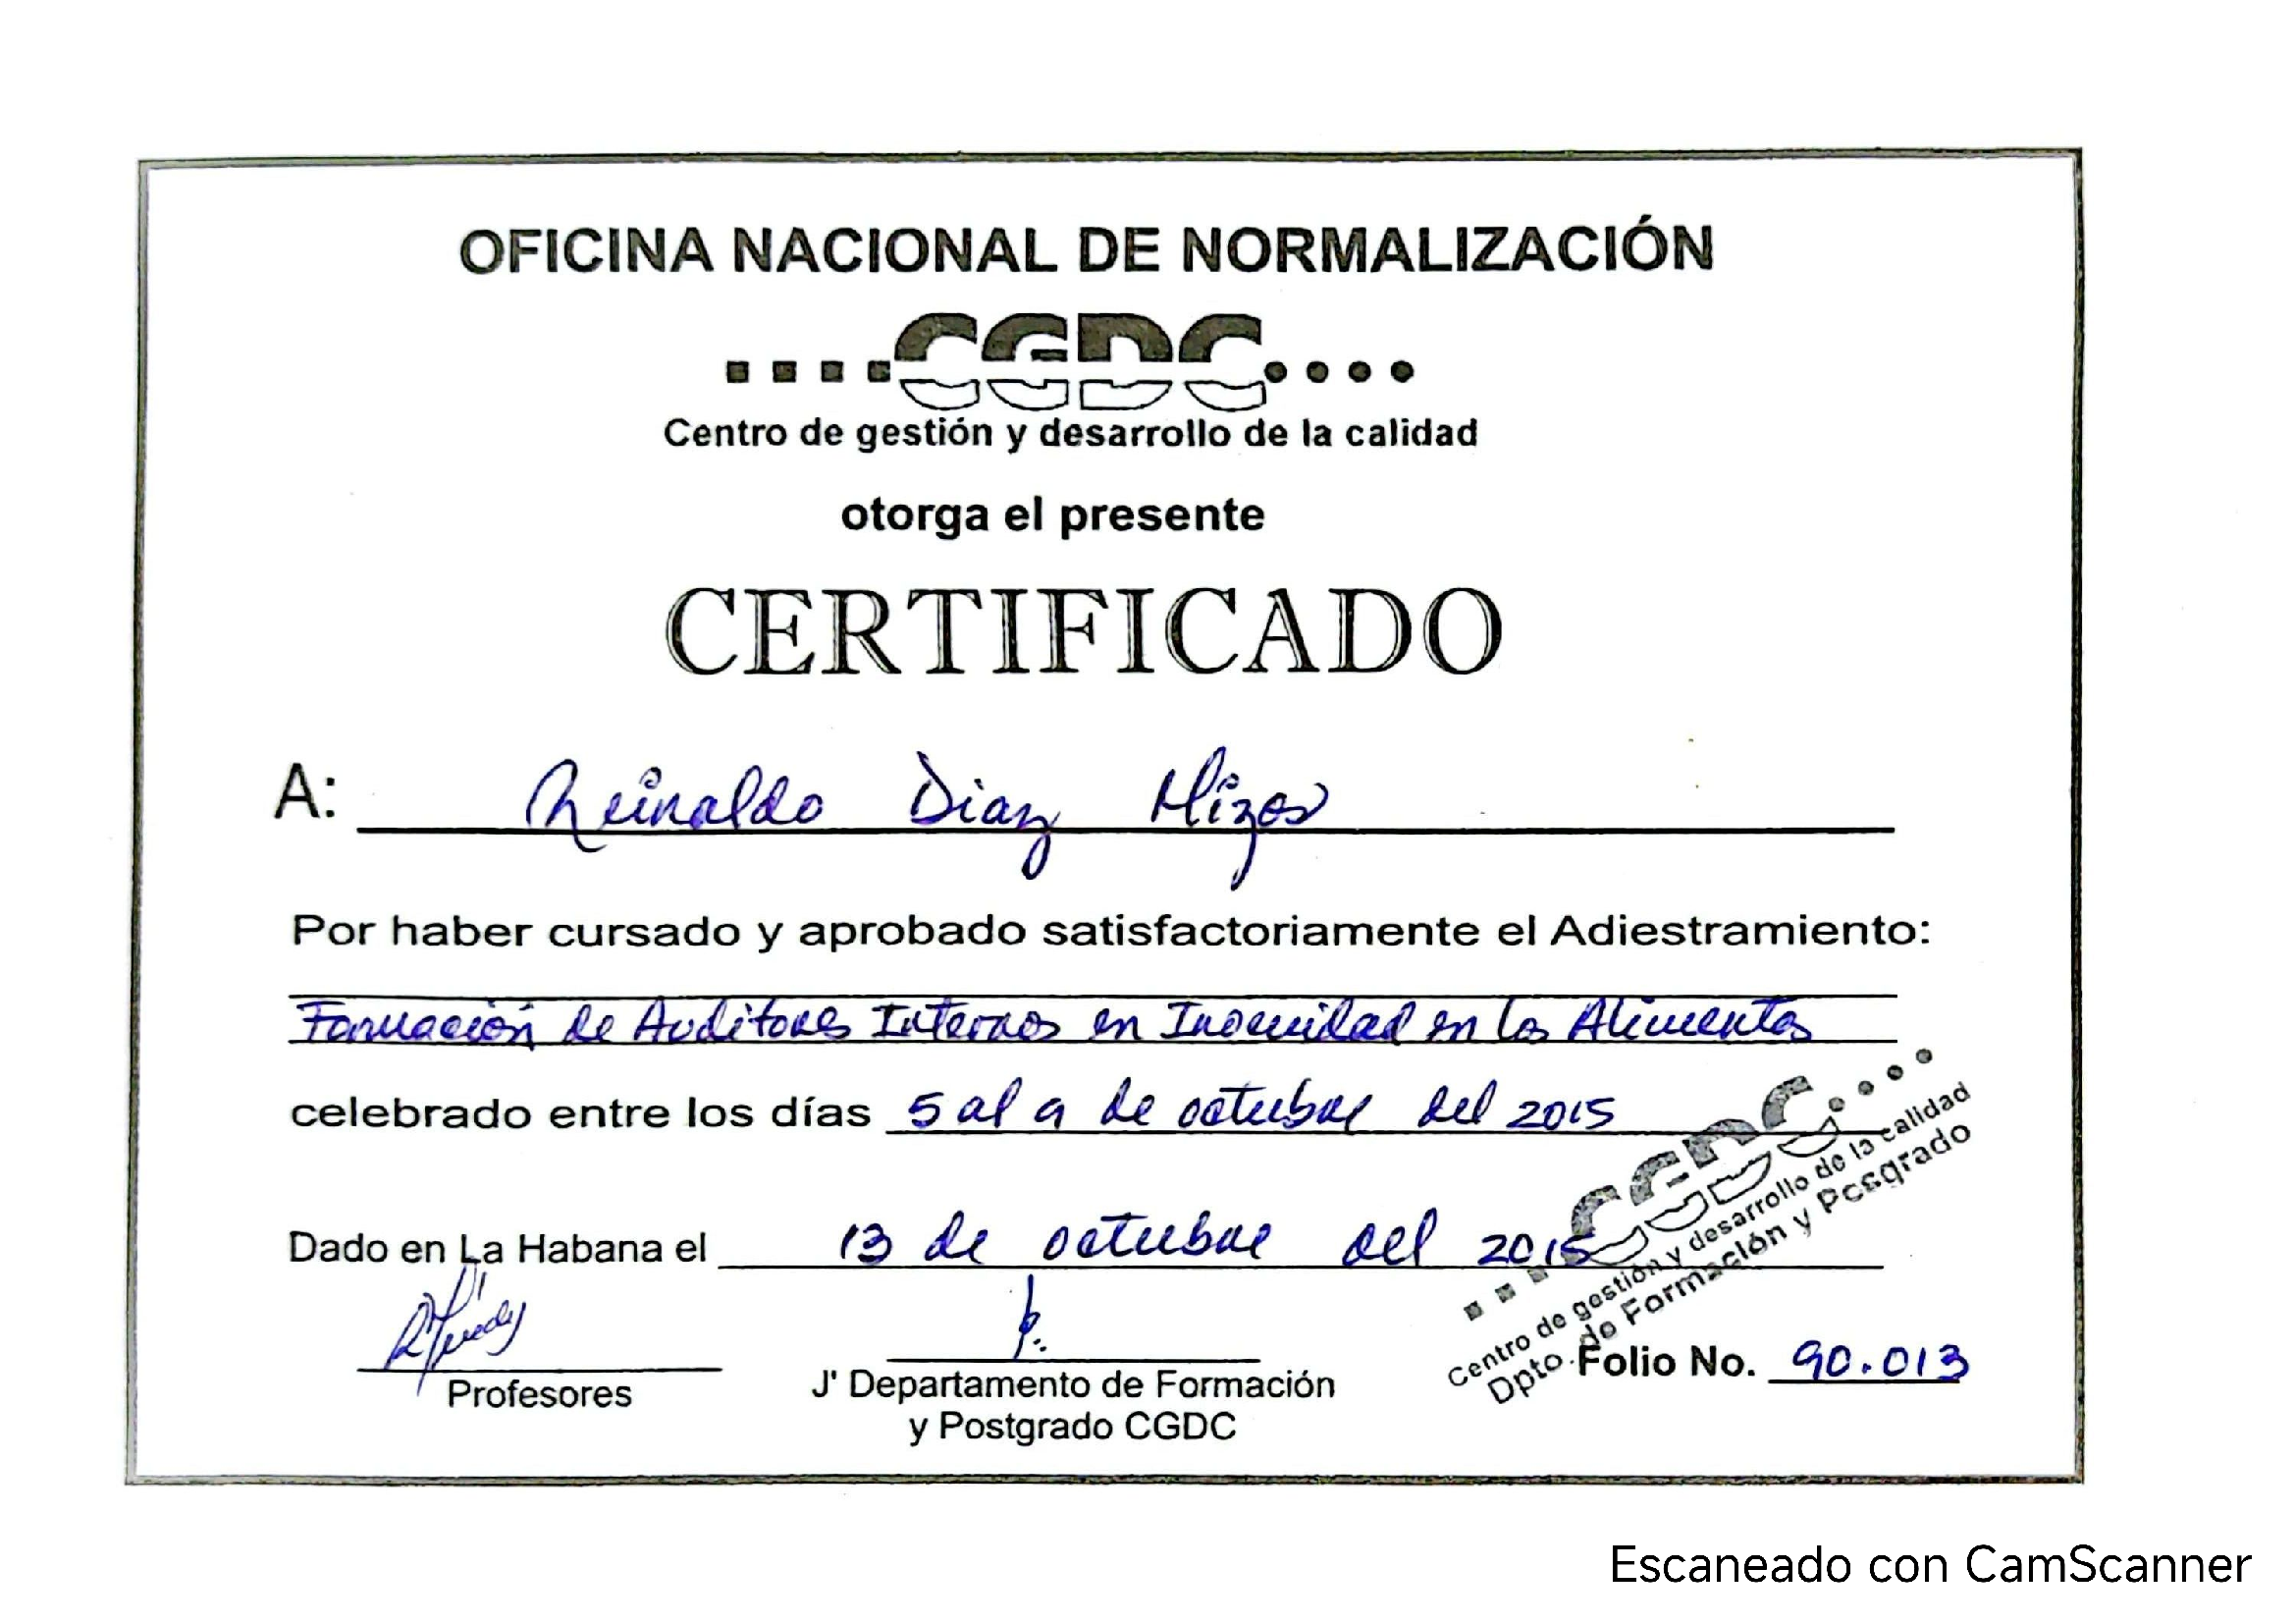 OFICINA NACIONAL DE NORMALIZACIÓN
CGDC
Centro de gestión y desarrollo de la calidad
otorga el presente
CERTIFICADO
A: Reinaldo Diaz
Por haber cursado y aprobado satisfactoriamente el Adiestramiento:
Formación de Auditores Internos en Inocuidad en los Alimentos
celebrado entre los días 5 al 9 de octubre del 2015
Dado en La Habana el 13 de octubre del 2015
Profesores
J' Departamento de Formación
y Postgrado CGDC
CGDC
Centro de gestión y desarrollo de la calidad
Dpto. de Formación y Posgrado
Folio No. 90.013
Escaneado con CamScanner